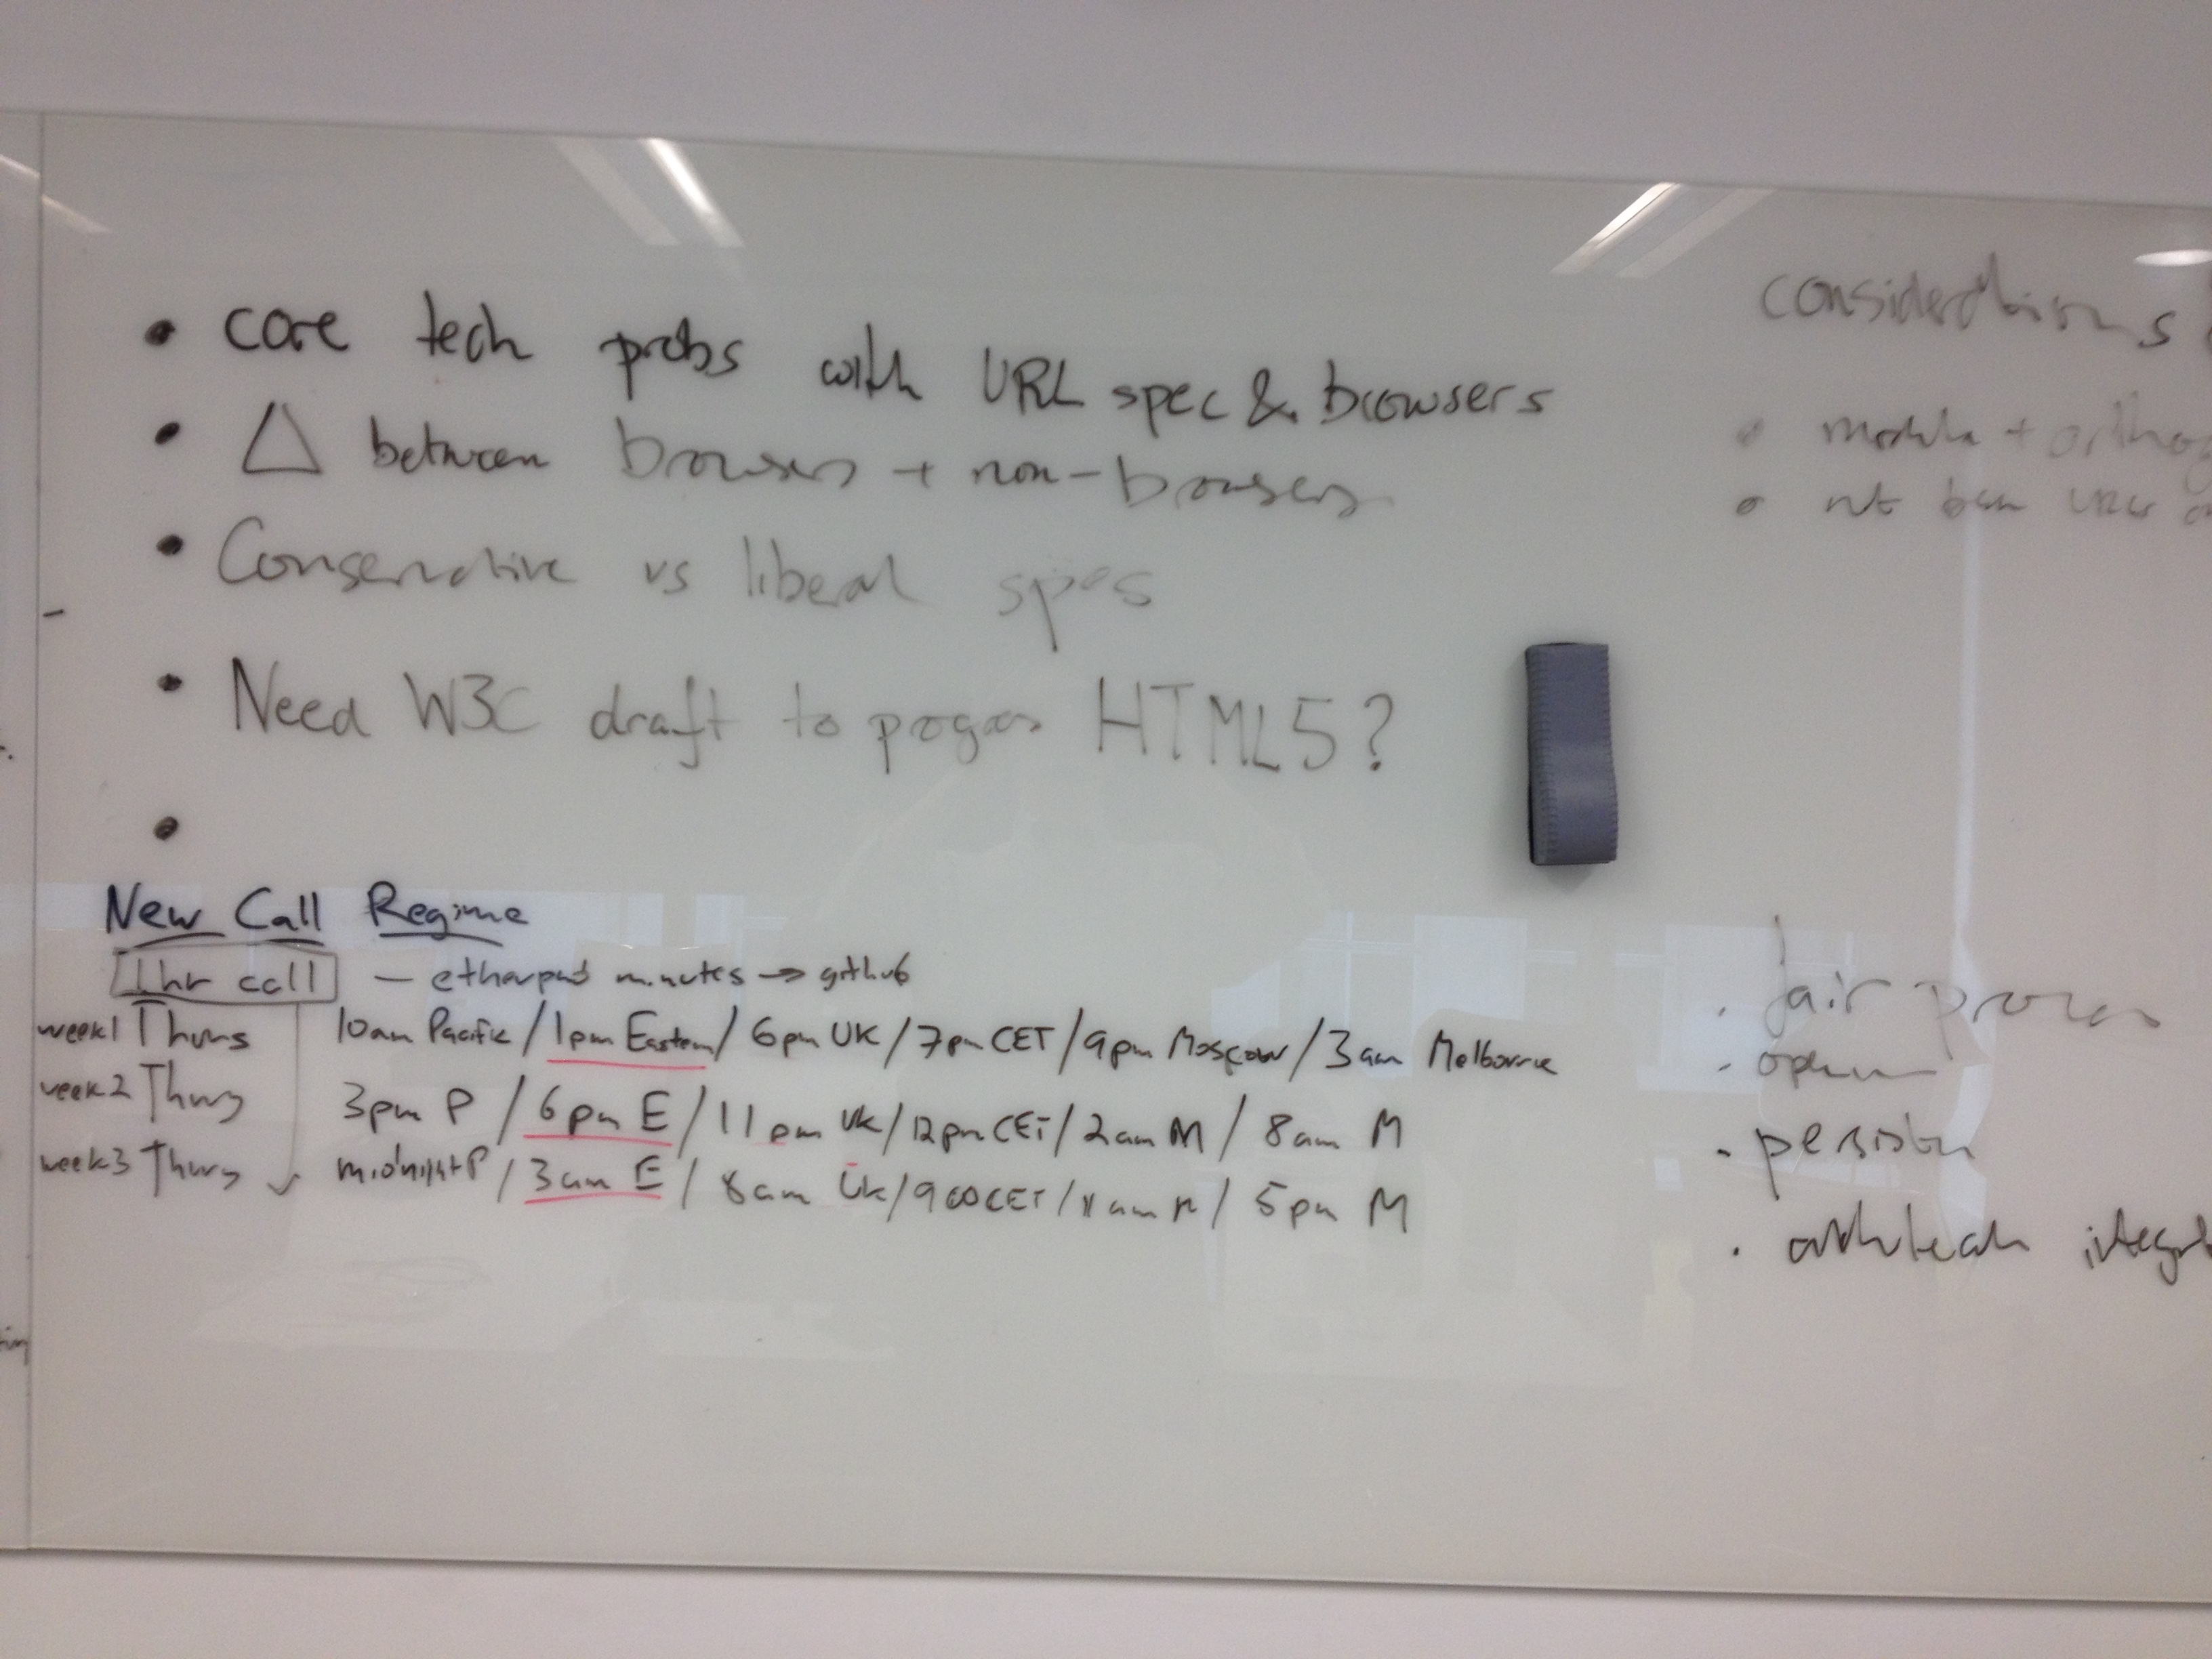 • core tech probs with URL spec & browsers
• △ between browsers + non-browsers
• Conservative vs liberal specs
• Need W3C draft to progress HTML5?
•
New Call Regime
1hr call — etherpad minutes → github
week1 Thurs 10am Pacific / 1pm Eastern / 6pm UK / 7pm CET / 9pm Moscow / 3am Melbourne
week2 Thurs 3pm P / 6pm E / 11pm UK / 12pm CET / 2am M / 8am M
week3 Thurs midnight P / 3am E / 8am UK / 9 CET / 11am M / 5pm M
considerations
• + orthog
• not URLs
. fair process
- open
- persistn
. integ